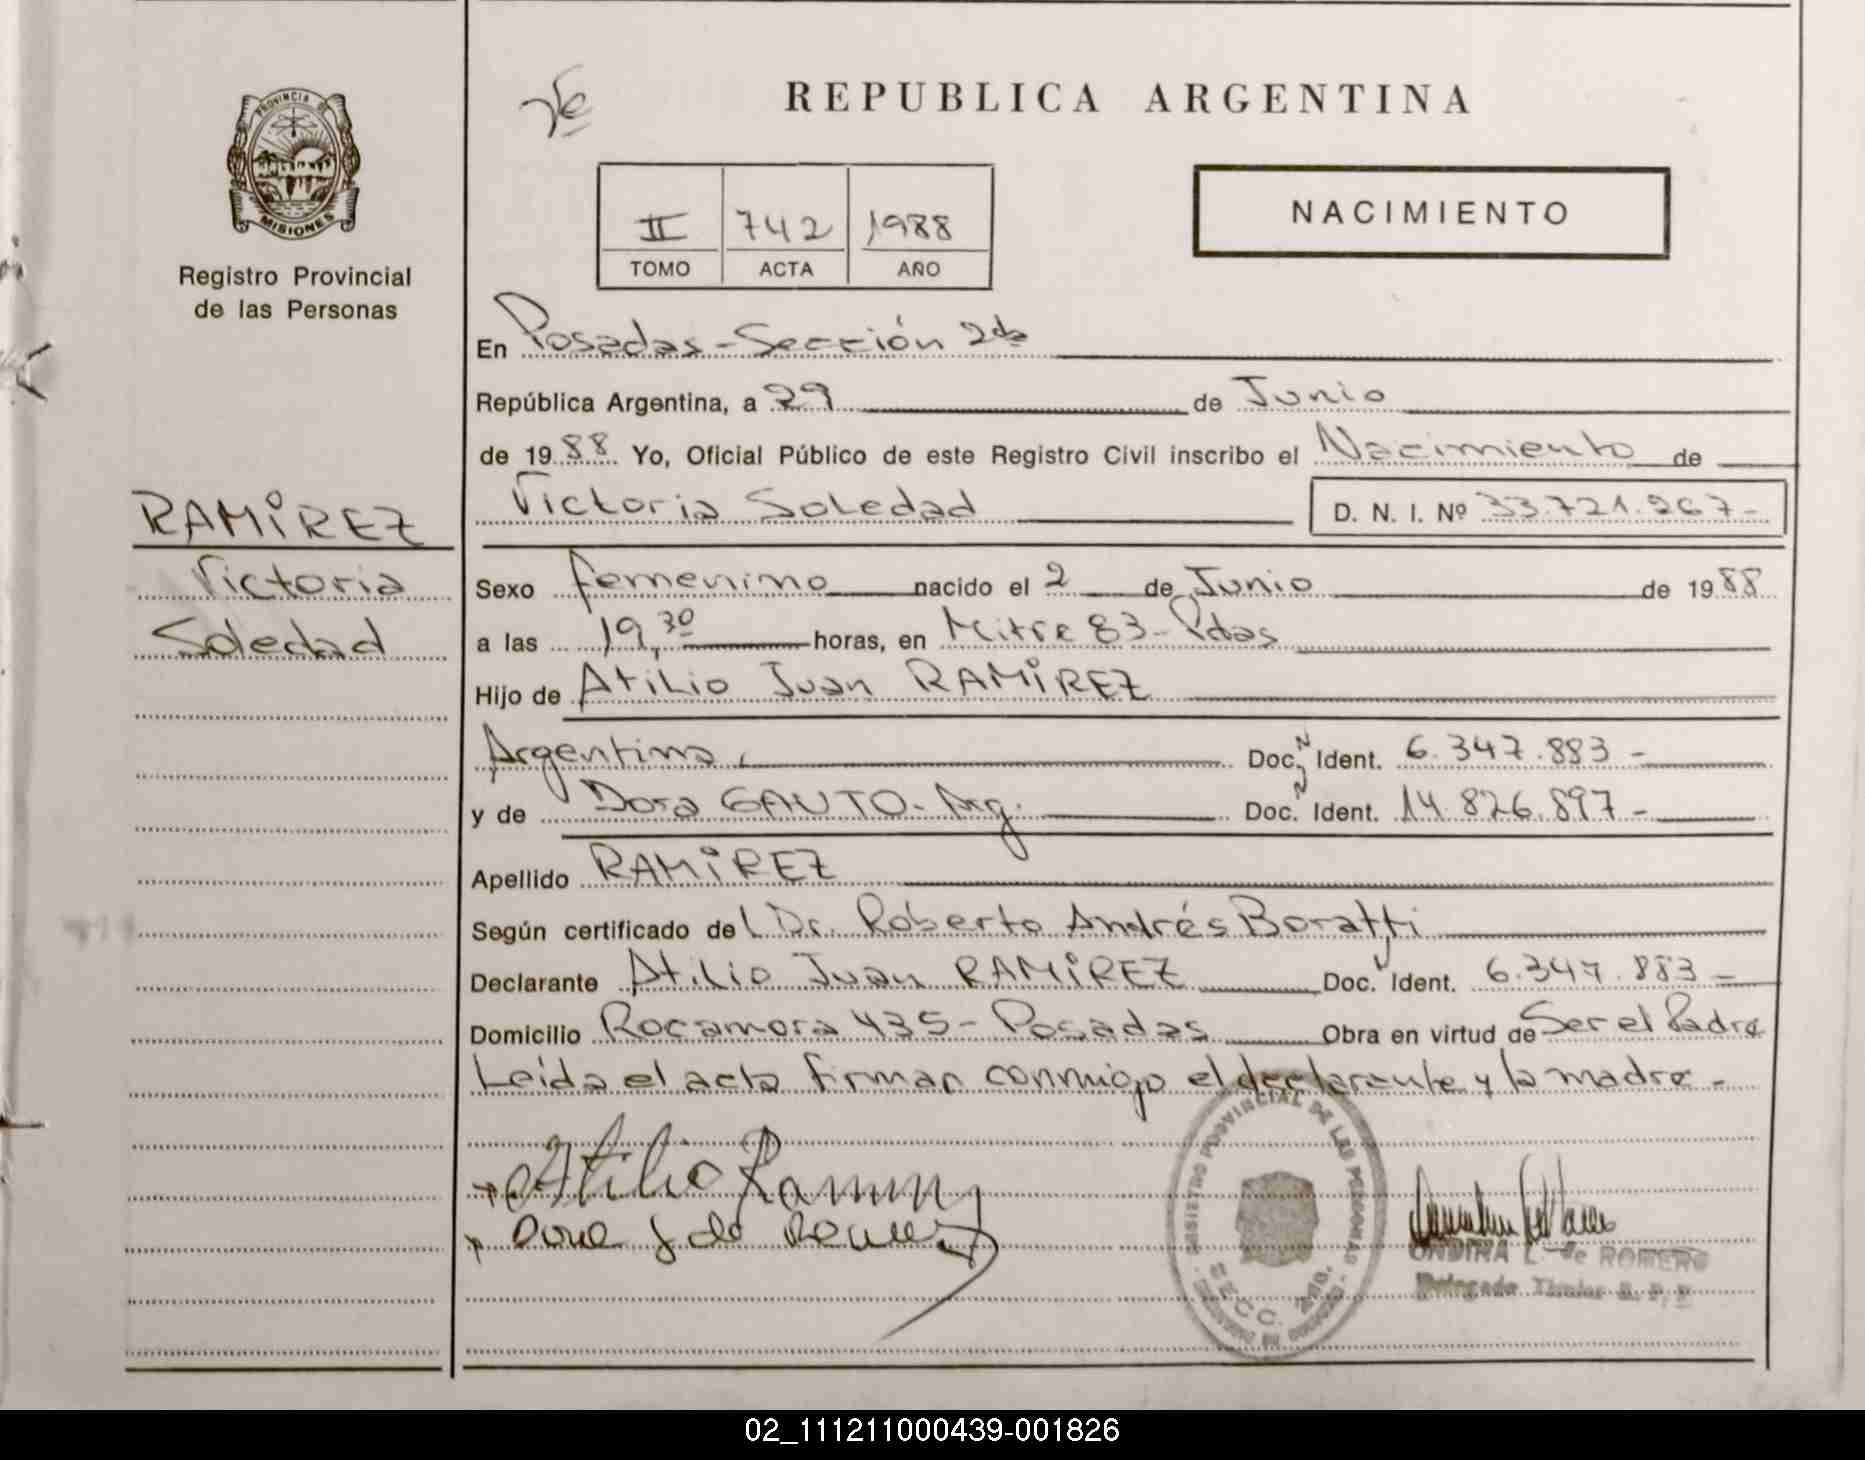 REPUBLICA ARGENTINA
PROVINCIA DE MISIONES
Registro Provincial
de las Personas
II 742 1988
TOMO ACTA AÑO
NACIMIENTO
En Posadas - Sección 2da
República Argentina, a 29 de Junio
de 1988 Yo, Oficial Público de este Registro Civil inscribo el Nacimiento de
Victoria Soledad D. N. I. Nº 33.721.267-
RAMIREZ
Victoria
Soledad
Sexo femenino nacido el 2 de Junio de 1988
a las 19,30 horas, en Mitre 83 - Pdas
Hijo de Atilio Juan RAMIREZ
Argentino, Doc. Ident. 6.347.883 -
y de Dora GAUTO - Arg. Doc. Ident. 14.826.897 -
Apellido RAMIREZ
Según certificado del Dr. Roberto Andrés Boratti
Declarante Atilio Juan RAMIREZ Doc. Ident. 6.347.883 -
Domicilio Rocamora 435 - Posadas Obra en virtud de Ser el Padre
Leída el acta firman conmigo el declarante y la madre -
Atilio Ramirez
Dora G de Ramirez
REGISTRO PROVINCIAL DE LAS PERSONAS
SECC. 2da.
ONDINA L. de ROMERO
Delegado Titular R. P. P.
02_111211000439-001826